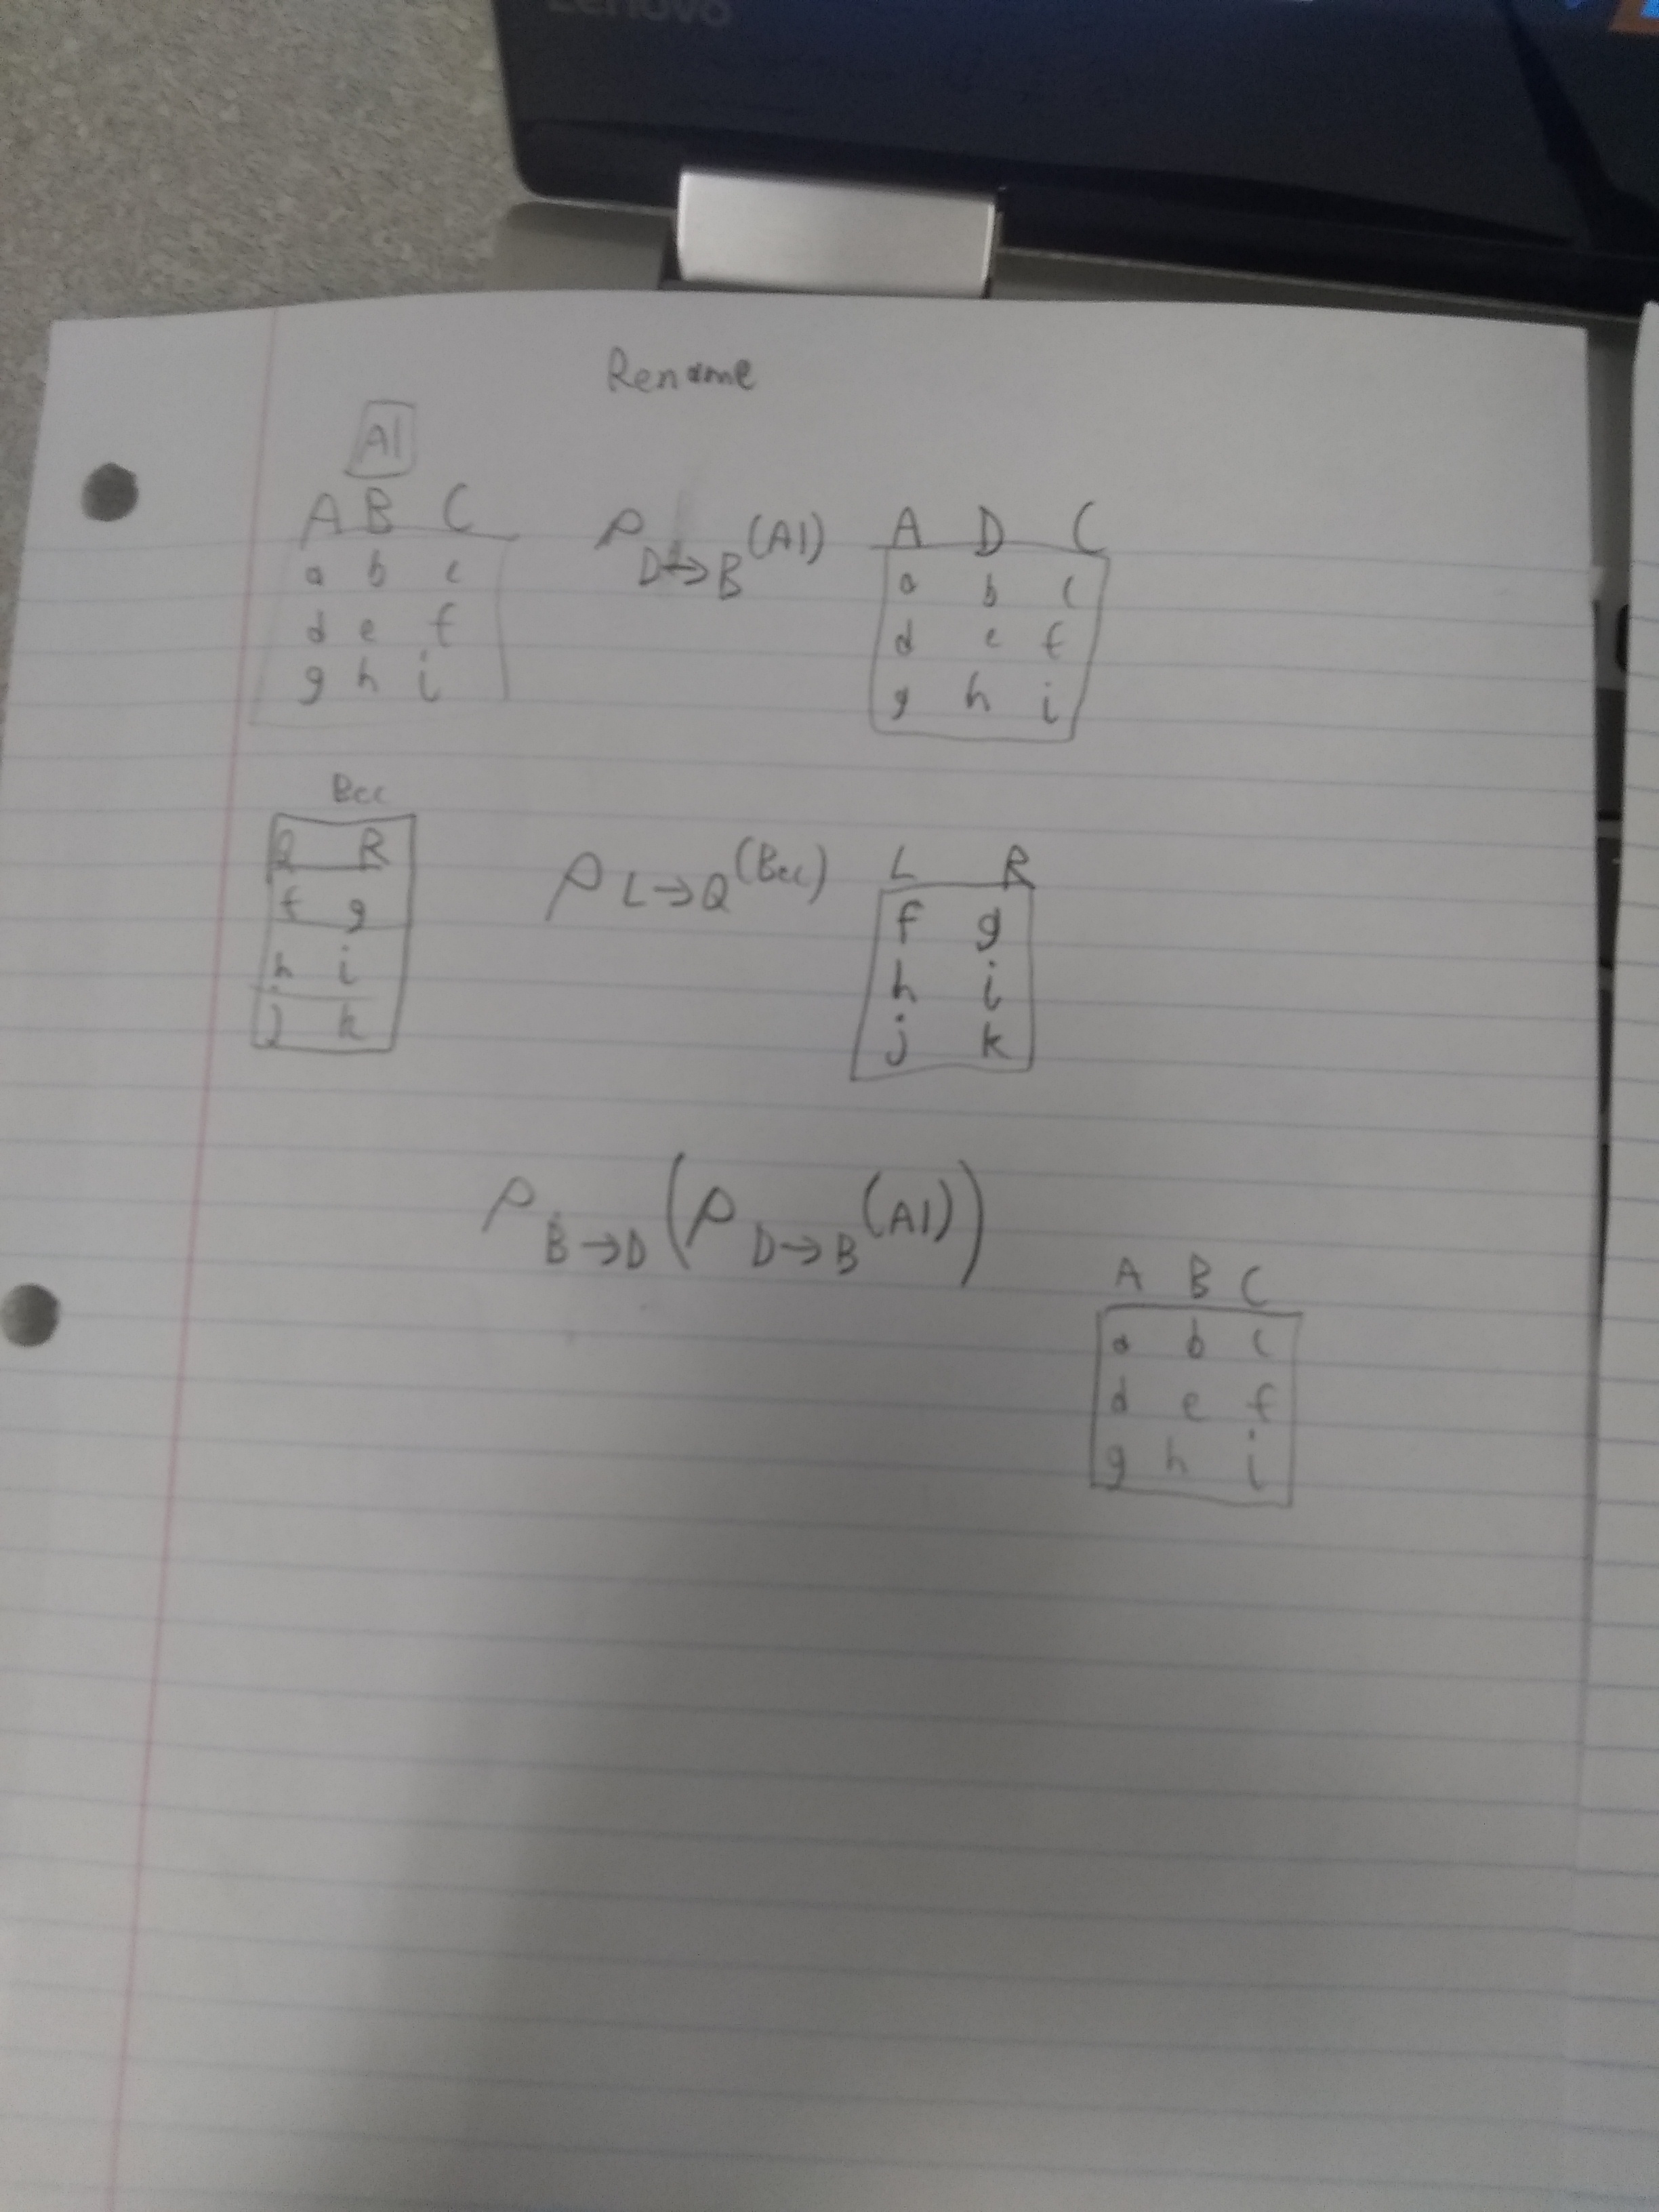 Lenovo
Rename
A1
A B C
a b c
d e f
g h i
ρ D→B (A1)
A D C
a b c
d e f
g h i
Bcc
Q R
f g
h i
j k
ρ L→Q (Bcc)
L R
f g
h i
j k
ρ B→D (ρ D→B (A1))
A B C
a b c
d e f
g h i